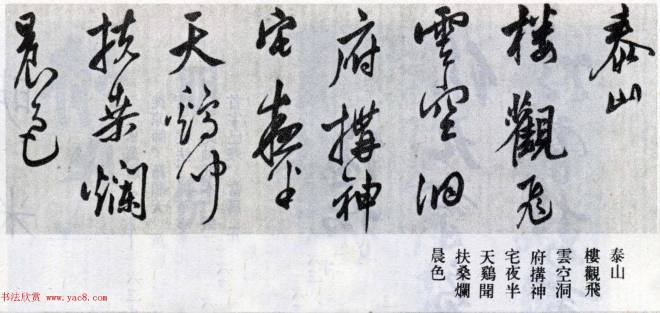 泰山
樓觀飛
雲空洞
府搆神
宅夜半
天鷄聞
扶桑爛
晨色
泰山
樓觀飛
雲空洞
府搆神
宅夜半
天鷄聞
扶桑爛
晨色
书法欣赏 www.yac8.com